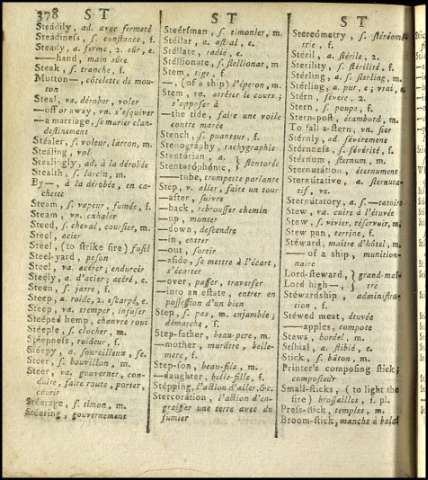 378 S T
Steadily, ad. avec fermeté
Steadiness, s. constance, f.
Steady, a. ferme, 2. sûr, e.
—hand, main sûre
Steak, s. tranche, f.
Mutton—, côtelette de mouton
Steal, va. dérober, voler
—off or away, vn. s'esquiver
—a marriage, se marier clandestinement
Stealer, s. voleur, larron, m.
Stealing, vol
Stealingly, ad. à la dérobée
Stealth, s. larcin, m.
By—, à la dérobée, en cachette
Steam, s. vapeur, fumée, f.
Steam, vn. exhaler
Steed, s. cheval, coursier, m.
Steel, acier
Steel, (to strike fire) fusil
Steel-yard, peson
Steel, va. acérer; endurcir
Steely, a. d'acier; acéré, e.
Steen, s. jarre, f.
Steep, a. roide, 2. escarpé, e.
Steep, va. tremper, infuser
Steeped hemp, chanvre roui
Steeple, s. clocher, m.
Steepness, roideur, f.
Steepy, a. sourcilleux, se.
Steer, s. bouvillon, m.
Steer, va. gouverner, conduire, faire route, porter, courir
Steerage, s. timon, m.
Steering, gouvernement
S T
Steersman, s. timonier, m.
Stellar, a. astral, e.
Stellate, radié, e.
Stellionate, s. stellionat, m
Stem, tige, f.
— (of a ship) l'éperon, m.
Stem, va. arrêter le cours; s'opposer à
—the tide, faire une voile contre marée
Stench, s. puanteur, f.
Stenography, tachygraphie
Stentorian, a. } stentorée
Stentorophonic, }
—tube, trompette parlante
Step, v. aller, faire un tour
—after, suivre
—back, rebrousser chemin
—up, monter
—down, descendre
—in, entrer
—out, sortir
—aside, se mettre à l'écart, s'écarter
—over, passer, traverser
—into an estate, entrer en possession d'un bien
Step, s. pas, m. enjambée; démarche, f.
Step-father, beau-pere, m.
—mother, marâtre, belle-mere, f.
Step-son, beau-fils, m.
—daughter, belle-fille, f.
Stepping, l'action d'aller, &c.
Stercoration, l'action d'engraisser une terre avec du fumier
S T
Stereometry, s. stéréométrie, f.
Steril, a. stérile, 2.
Sterility, s. stérilité, f.
Sterling, s. sterling, m.
Sterling, a. pur, e; vrai, e.
Stern, sévere, 2.
Stern, s. poupe, f.
Stern-post, étambord, m.
To fall a-stern, vn. sier
Sternly, ad. sévérement
Sternness, s. sévérité, f.
Sternum, sternum, m.
Sternutation, éternument
Sternutative, a. sternutatif, ve.
Sternutatory, a. s.—tatoire
Stew, va. cuire à l'étuvée
Stew, s. vivier, réservoir, m.
Stew pan, terrine, f.
Steward, maître d'hôtel, m.
— of a ship, munitionnaire
Lord-steward, } grand-maître
Lord high—, }
Stewardship, administration, f.
Stewed meat, étuvée
—apples, compote
Stews, bordel, m.
Stibial, a. stibié, e.
Stick, s. bâton, m.
Printer's composing stick; composteur
Small-sticks, (to light the fire) brossailles, f. pl.
Press-stick, temples, m.
Broom-stick, manche à balai